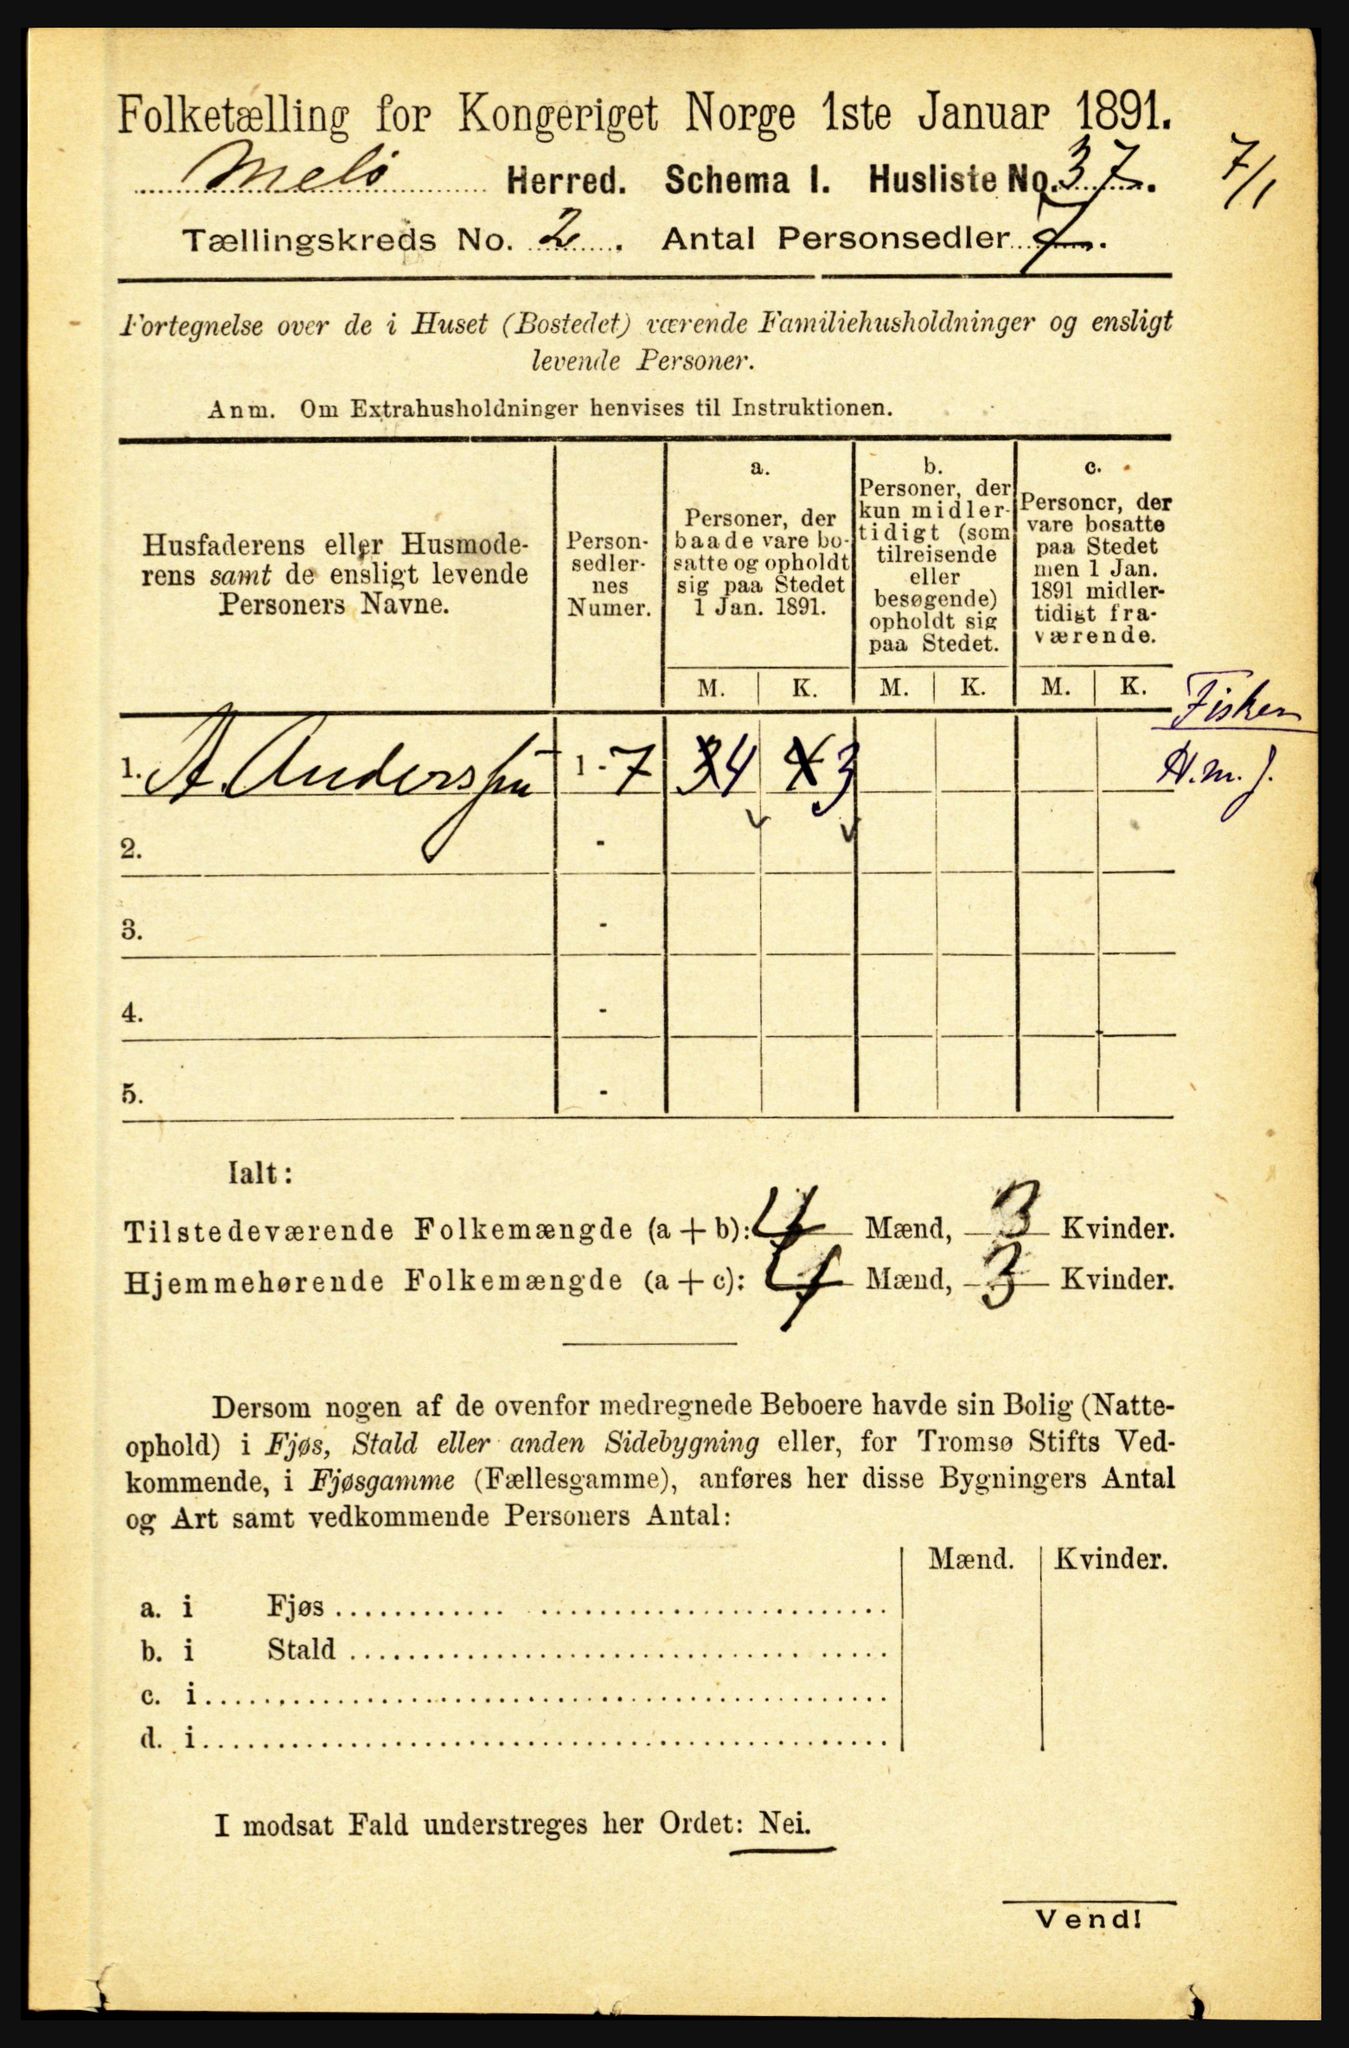 Folketælling for Kongeriget Norge 1ste Januar 1891.
Melö Herred. Schema I. Husliste No. 37.
7/1
Tællingskreds No. 2. Antal Personsedler 7.
Fortegnelse over de i Huset (Bostedet) værende Familiehusholdninger og ensligt
levende Personer.
Anm. Om Extrahusholdninger henvises til Instruktionen.
Husfaderens eller Husmode-
rens samt de ensligt levende
Personers Navne.
Person-
sedler-
nes
Numer.
a.
Personer, der
baade vare bo-
satte og opholdt
sig paa Stedet
1 Jan. 1891.
b.
Personer, der
kun midler-
tidigt (som
tilreisende
eller
besøgende)
opholdt sig
paa Stedet.
c.
Personer, der
vare bosatte
paa Stedet
men 1 Jan.
1891 midler-
tidigt fra-
værende.
M. K. M. K. M. K.
Fisker
1. A. Anderssen 1 - 7 3 4 4 3
H.m.J.
2. -
3. -
4. -
5. -
Ialt:
Tilstedeværende Folkemængde (a + b): 4 Mænd, 3 Kvinder.
Hjemmehørende Folkemængde (a + c): 4 Mænd, 3 Kvinder.
Dersom nogen af de ovenfor medregnede Beboere havde sin Bolig (Natte-
ophold) i Fjøs, Stald eller anden Sidebygning eller, for Tromsø Stifts Ved-
kommende, i Fjøsgamme (Fællesgamme), anføres her disse Bygningers Antal
og Art samt vedkommende Personers Antal:
Mænd. Kvinder.
a. i Fjøs
b. i Stald
c. i
d. i
I modsat Fald understreges her Ordet: Nei.
Vend!